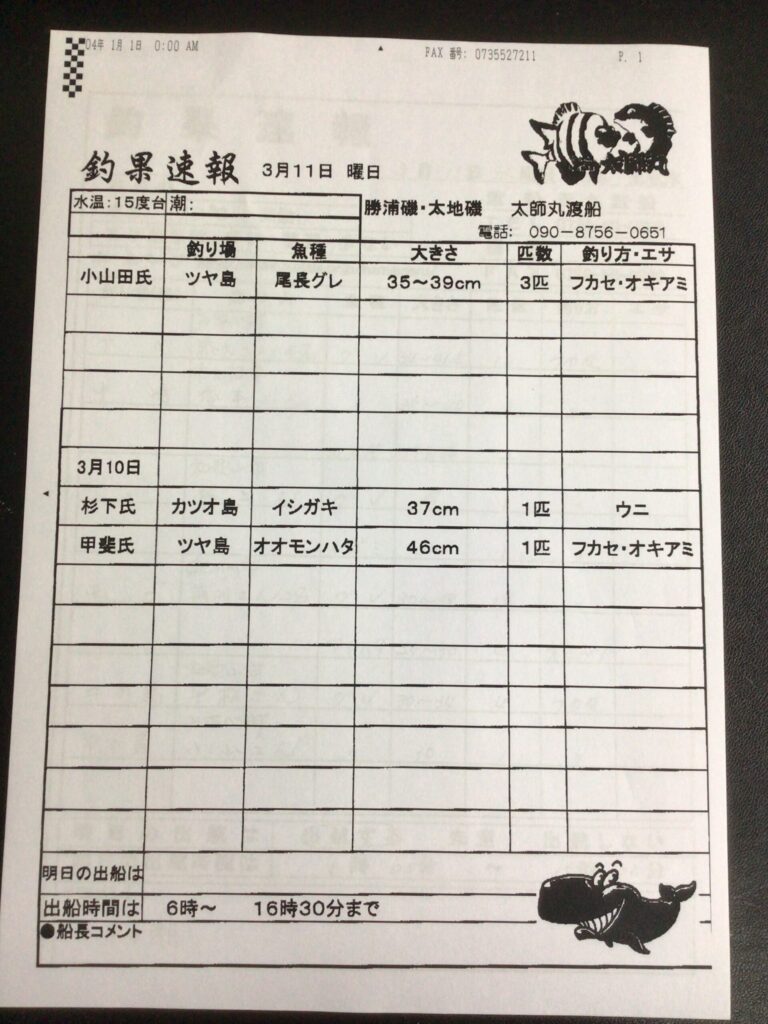 04年 1月 1日 0:00 AM FAX 番号: 0735527211 P. 1
釣果速報 3月11日 曜日
水温:15度台 潮: 勝浦磯・太地磯 太師丸渡船
電話: 090-8756-0651
釣り場 魚種 大きさ 匹数 釣り方・エサ
小山田氏 ツヤ島 尾長グレ 35~39cm 3匹 フカセ・オキアミ
3月10日
杉下氏 カツオ島 イシガキ 37cm 1匹 ウニ
甲斐氏 ツヤ島 オオモンハタ 46cm 1匹 フカセ・オキアミ
明日の出船は
出船時間は 6時~ 16時30分まで
●船長コメント